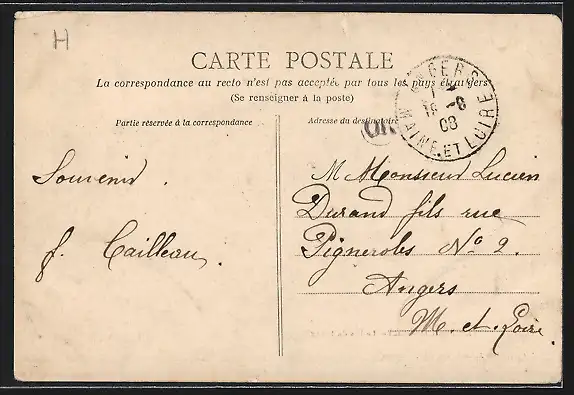 H
CARTE POSTALE
La correspondance au recto n'est pas acceptée par tous les pays étrangers
(Se renseigner à la poste)
Partie réservée à la correspondance
Adresse du destinataire
ANGERS
18 -8
08
MAINE-ET-LOIRE
OR
Souvenir.
f. Cailleau.
M Monsieur Lucien
Durand fils rue
Pignerolss No 2.
Angers
M. et. Loire.